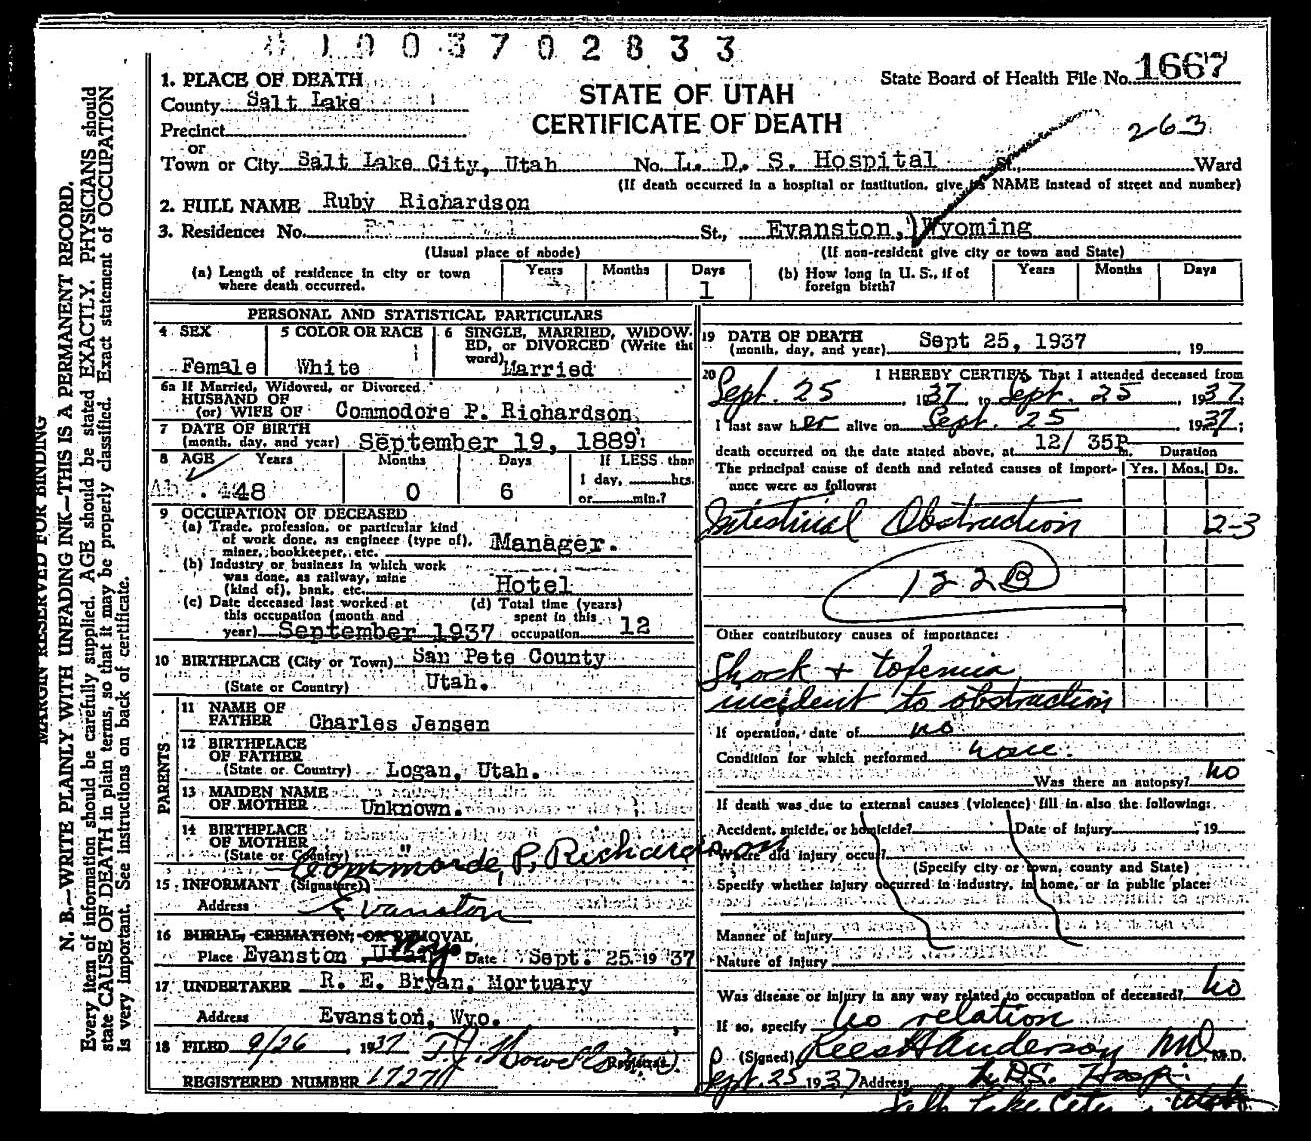 81003702833
State Board of Health File No. 1667
1. PLACE OF DEATH
STATE OF UTAH
County Salt Lake
CERTIFICATE OF DEATH
263
Precinct
or
Town or City Salt Lake City, Utah No. L. D. S. Hospital St., Ward
(If death occurred in a hospital or institution, give its NAME instead of street and number)
2. FULL NAME Ruby Richardson
3. Residence: No. St., Evanston, Wyoming
(Usual place of abode) (If non-resident give city or town and State)
(a) Length of residence in city or town where death occurred. Years Months Days 1
(b) How long in U. S., if of foreign birth? Years Months Days
PERSONAL AND STATISTICAL PARTICULARS
4 SEX Female
5 COLOR OR RACE White
6 SINGLE, MARRIED, WIDOWED, or DIVORCED (Write the word) Married
6a If Married, Widowed, or Divorced
HUSBAND OF
(or) WIFE OF Commodore P. Richardson
7 DATE OF BIRTH
(month, day, and year) September 19, 1889
8 AGE Years Months Days If LESS than
1 day, hrs.
or min.?
48 0 6
9 OCCUPATION OF DECEASED
(a) Trade, profession, or particular kind
of work done, as engineer (type of),
miner, bookkeeper, etc. Manager.
(b) Industry or business in which work
was done, as railway, mine
(kind of), bank, etc. Hotel
(c) Date deceased last worked at
this occupation (month and
year) September 1937
(d) Total time (years)
spent in this
occupation 12
10 BIRTHPLACE (City or Town) San Pete County
(State or Country) Utah.
PARENTS
11 NAME OF
FATHER Charles Jensen
12 BIRTHPLACE
OF FATHER
(State or Country) Logan, Utah.
13 MAIDEN NAME
OF MOTHER Unknown.
14 BIRTHPLACE
OF MOTHER
(State or Country) "
15 INFORMANT (Signature) Commorde, P. Richardson
Address Evanston
16 BURIAL, CREMATION, OR REMOVAL
Place Evanston, Utah Wyo Date Sept. 25 1937
17 UNDERTAKER R. E. Bryan, Mortuary
Address Evanston, Wyo.
18 FILED 9/26, 1937 Registrar.
REGISTERED NUMBER 1727
19 DATE OF DEATH
(month, day, and year) Sept 25, 1937 19
20 I HEREBY CERTIFY, That I attended deceased from
Sept. 25, 1937, to Sept. 25, 1937.
I last saw her alive on Sept. 25 1937;
death occurred on the date stated above, at 12/ 35P m.
Duration
The principal cause of death and related causes of importance were as follows: Yrs. Mos. Ds.
Intestinal Obstruction 2-3
122B
Other contributory causes of importance:
Shock + toxemia
incident to obstruction
If operation, date of no
Condition for which performed none.
Was there an autopsy? no
If death was due to external causes (violence) fill in also the following:
Accident, suicide, or homicide? Date of injury, 19
Where did injury occur?
(Specify city or town, county and State)
Specify whether injury occurred in industry, in home, or in public place:
Manner of injury
Nature of injury
Was disease or injury in any way related to occupation of deceased? no
If so, specify no relation
(Signed) Rees H Anderson MD M.D.
Sept. 25 1937 Address L.D.S. Hosp.
Salt Lake City, Utah
MARGIN RESERVED FOR BINDING
N. B.—WRITE PLAINLY WITH UNFADING INK—THIS IS A PERMANENT RECORD.
Every item of information should be carefully supplied. AGE should be stated EXACTLY. PHYSICIANS should
state CAUSE OF DEATH in plain terms, so that it may be properly classified. Exact statement of OCCUPATION
is very important. See instructions on back of certificate.